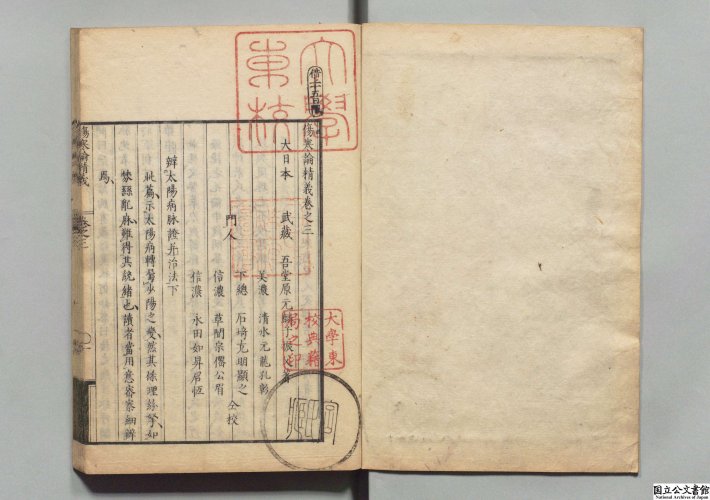 傷寒論精義卷之三
大日本 武藏 吾堂原元麟子振父著
美濃 清水元龍孔彰
下總 石埼克明顯之
門人 仝校
信濃 草間宗儒公眉
信濃 永田如昇君恆
辯太陽病脉證并治法下
此篇示太陽病轉屬少陽之變然其條理紛拏如
棼絲亂麻難得其統緒也讀者當用意審察細辨
焉
傷寒論精義
卷之三
大學東校
大學東校典籍局之印
国立公文書館
National Archives of Japan